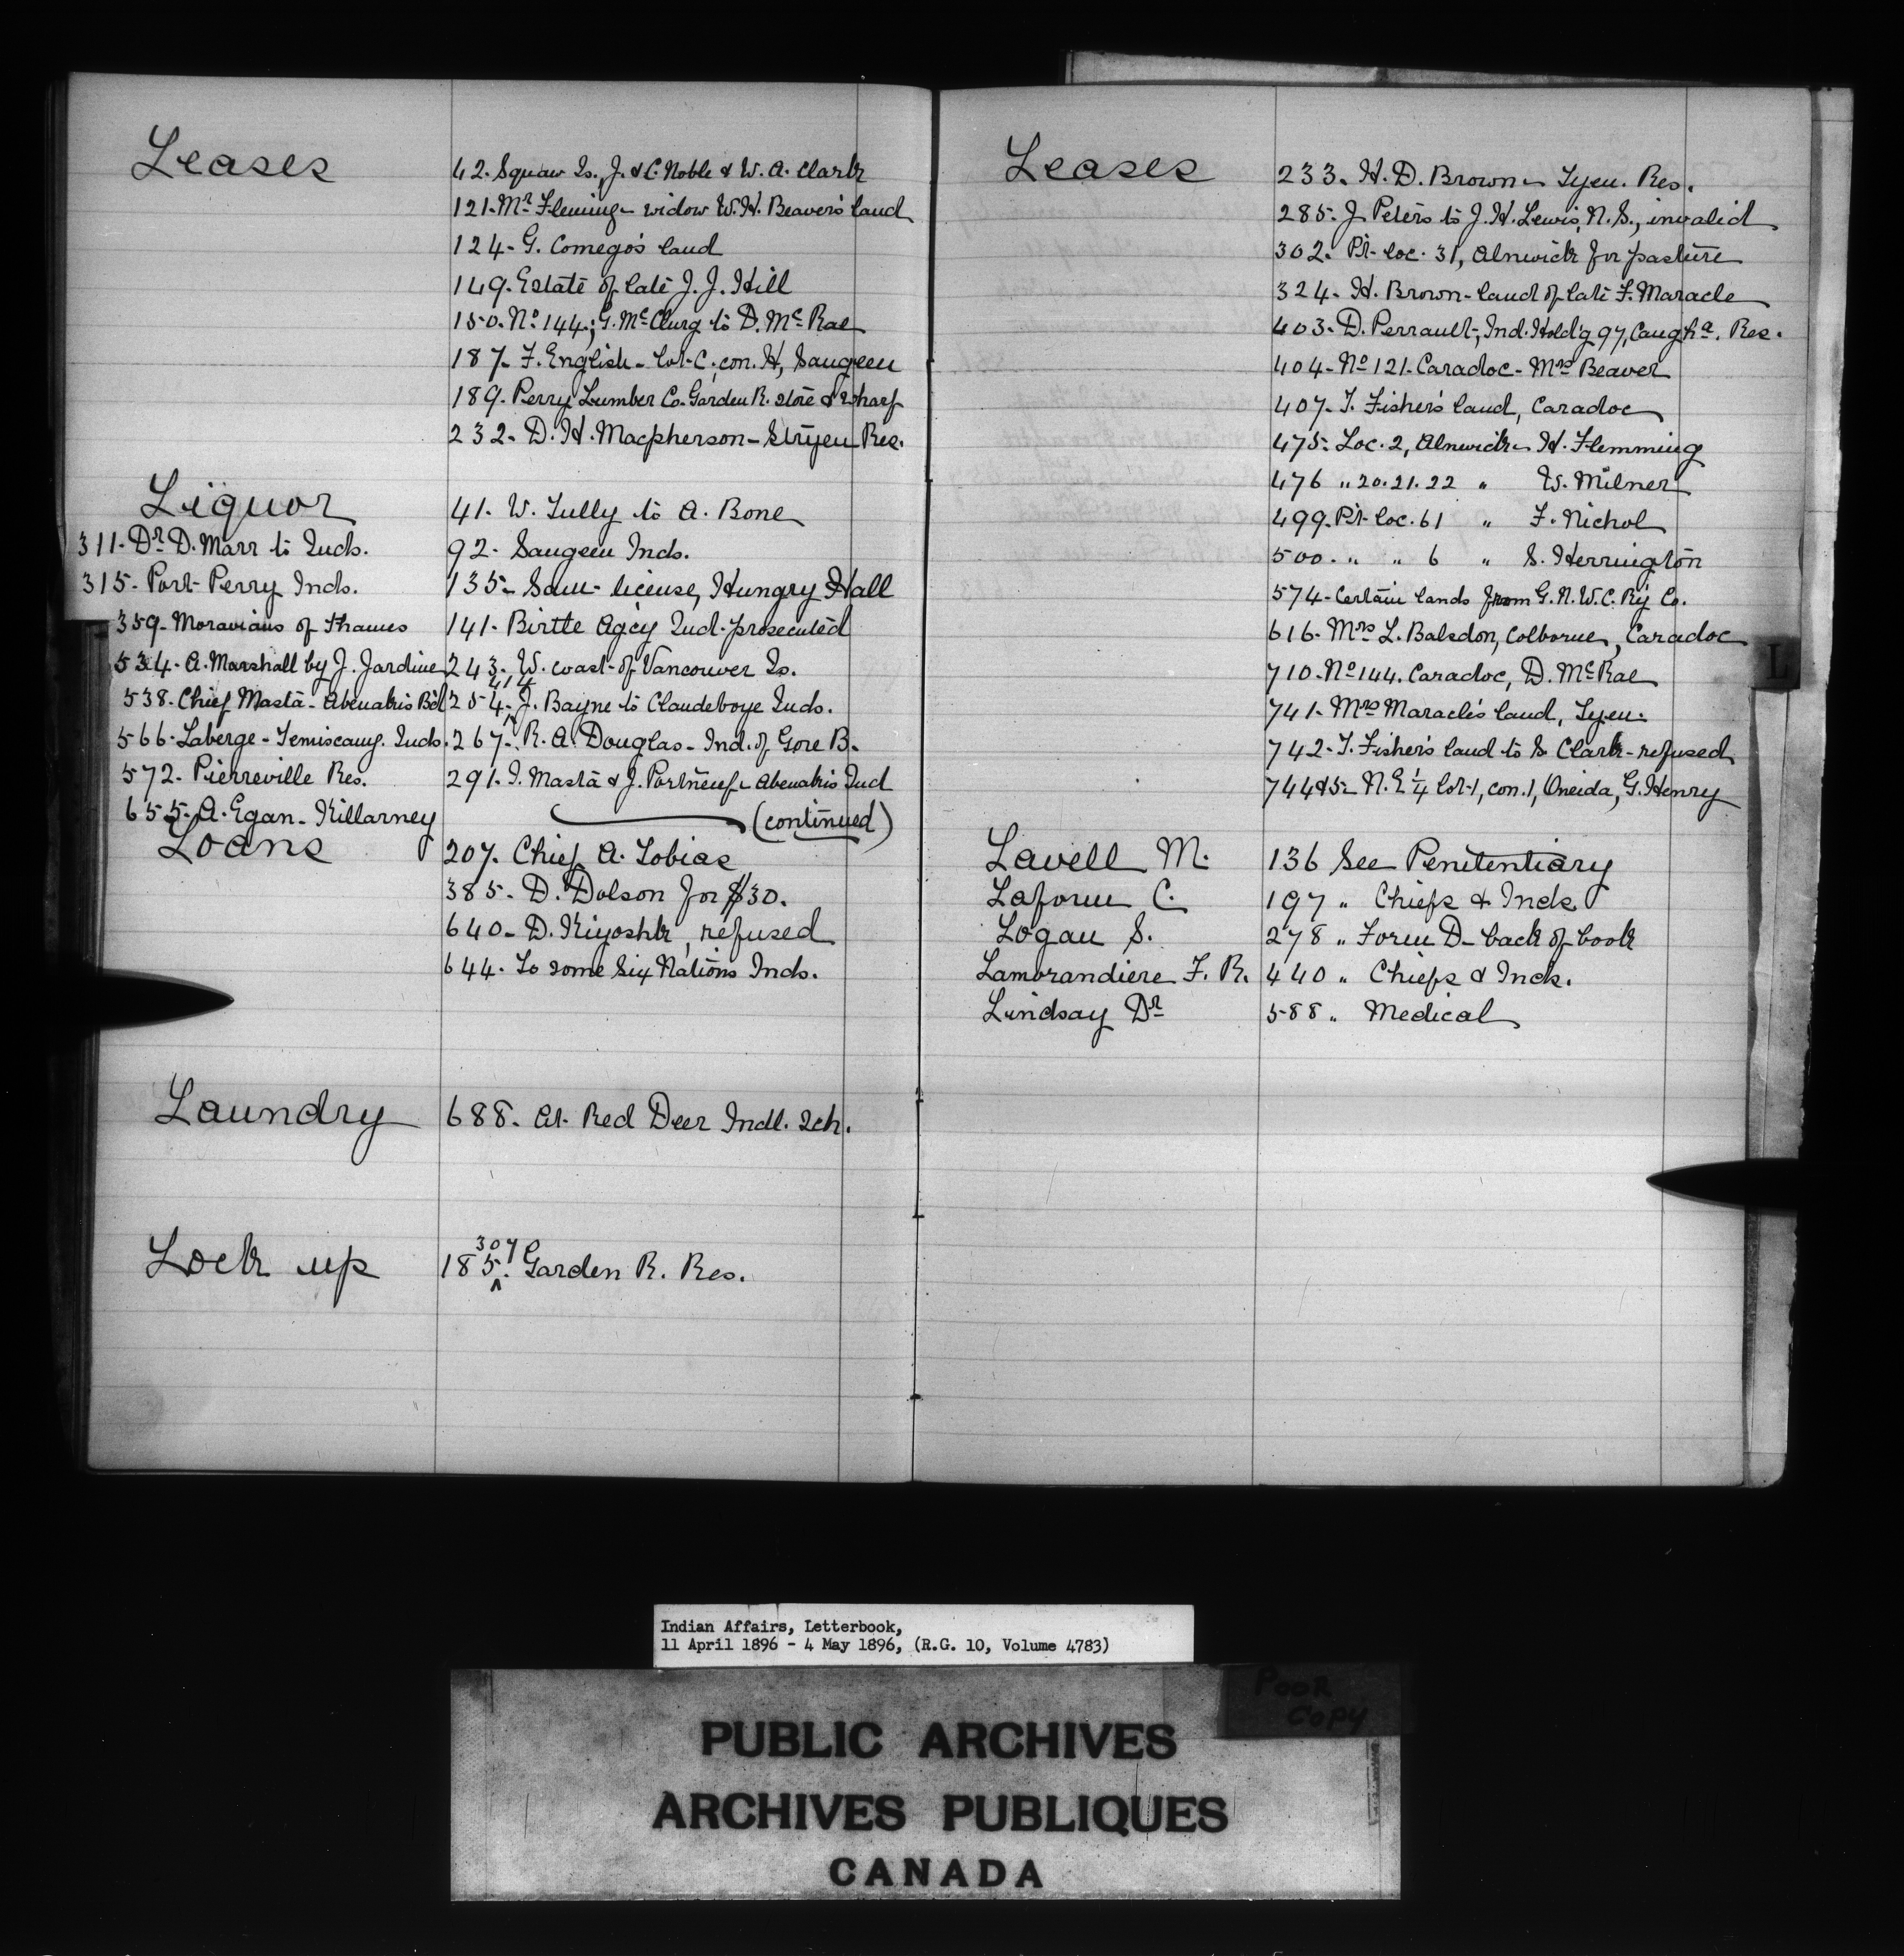 Leases
42. Squaw Is., J. & C. Noble & W. A. Clark
121. Mr Fleming - widow W. H. Beaver's land
124. G. Comego's land
149. Estate of late J. J. Hill
150. No 144; G. McClurg to D. McRae
187. F. English - lot C, con. H, Saugeen
189. Perry Lumber Co. Garden R. store & wharf
232. D. H. Macpherson - Res.
Liquor
41. W. Tully to A. Bone
311. Dr D. Marr to Inds.
92. Saugeen Inds.
315. Port Perry Inds.
135. license, Hungry Hall
359. Moravians of Thames
141. Birtle Agcy Ind. prosecuted
534. A. Marshall by J. Jardine
243. W. coast of Vancouver Is.
538. Chief Masta - Abenakis Bd
414
254. J. Bayne to Clandeboye Inds.
566. Laberge - Temiscamg. Inds.
267. R. A. Douglas - Ind. of Gore B.
572. Pierreville Res.
291. I. Masta & J. Portneuf - Abenakis Ind
655. A. Egan - Killarney
(continued)
Loans
207. Chief A. Tobias
385. D. Dolson for $30.
640. D. Kiyoshk, refused
644. To some Six Nations Inds.
Laundry
688. At Red Deer Indl. Sch.
Lock up
307
185. Garden R. Res.
Leases
233. H. D. Brown - Tyen. Res.
285. J Peters to J. H. Lewis, N. S., invalid
302. Pt. loc. 31, Alnwick for pasture
324. H. Brown - land of late F. Maracle
403. D. Perrault, Ind. Hold'g 97, Caugha. Res.
404. No 121. Caradoc - Mrs Beaver
407. T. Fisher's land, Caradoc
475. Loc. 2, Alnwick - H. Flemming
476 " 20. 21. 22 " W. Milner
499. Pt. loc. 61 " F. Nichol
500. " " 6 " S. Herrington
574. Certain lands from G. N. W. C. Ry Co.
616. Mrs L. Balsdon, Colborne, Caradoc
710. No 144. Caradoc, D. McRae
741. Mrs Maracle's land, Tyen.
742. T. Fisher's land to S. Clark - refused
744 & 5. N. E 1/4 lot 1, con. 1, Oneida, G. Henry
Lavell M. 136 See Penitentiary
Laform C. 197 " Chiefs & Inds
Logan S. 278 " Form D - back of book
Lamorandiere F. R. 440 " Chiefs & Inds.
Lindsay Dr 588 " Medical
L
Indian Affairs, Letterbook,
11 April 1896 - 4 May 1896, (R.G. 10, Volume 4783)
POOR
COPY
PUBLIC ARCHIVES
ARCHIVES PUBLIQUES
CANADA